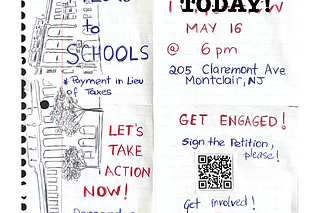 to
SCHOOLS
* Payment in Lieu
of Taxes
LET'S
TAKE
ACTION
NOW!
TODAY!
MAY 16
@ 6 pm
205 Claremont Ave
Montclair, NJ
GET ENGAGED!
Sign the Petition,
please!
Get involved!